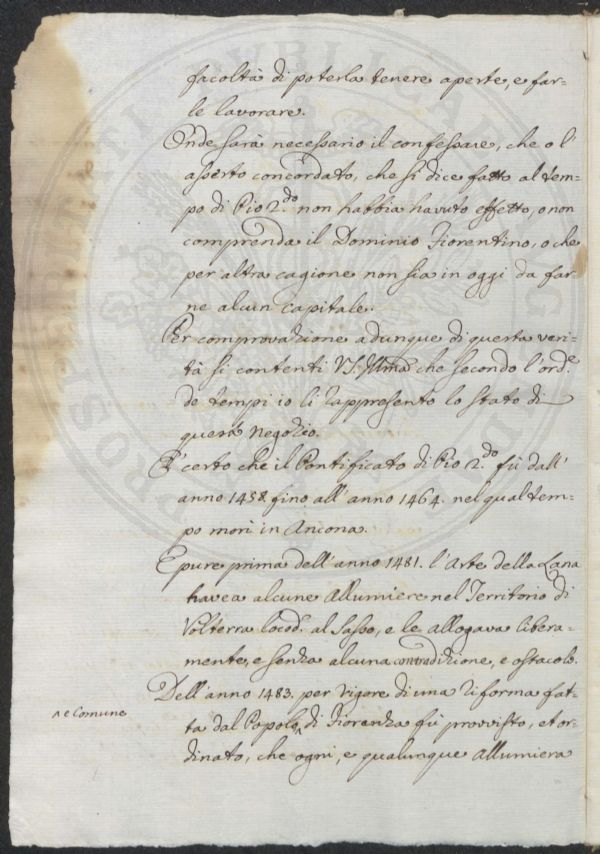 facoltà di poterla tenere aperte, e far-
le lavorare.
Onde sarà necessario il confessare, che o l'
asserto concordato, che si dice fatto al tem-
po di Pio 2.do non habbia havuto effetto, o non
comprenda il Dominio Fiorentino, o che
per altra cagione non sia in oggi da far-
ne alcun capitale.
Per comprovazione adunque di questa veri-
tà si contenti VS. Illma che secondo l'ord.e
de tempi io li rappresento lo stato di
questo negozio.
È certo che il Pontificato di Pio 2.do fù dall'
anno 1458 fino all'anno 1464. nel qual tem-
po morì in Ancona.
E pure prima dell'anno 1481. l'Arte della Lana
havea alcune Allumiere nel Territorio di
Volterra locod. al Sasso, e le allogava libera-
mente, e senza alcuna contradizione, e ostacolo.
Dell'anno 1483. per vigore di una riforma fat-
^ e Comune
ta dal Popolo ^ di Fiorenza fù provvisto, et or-
dinato, che ogni, e qualunque Allumiera